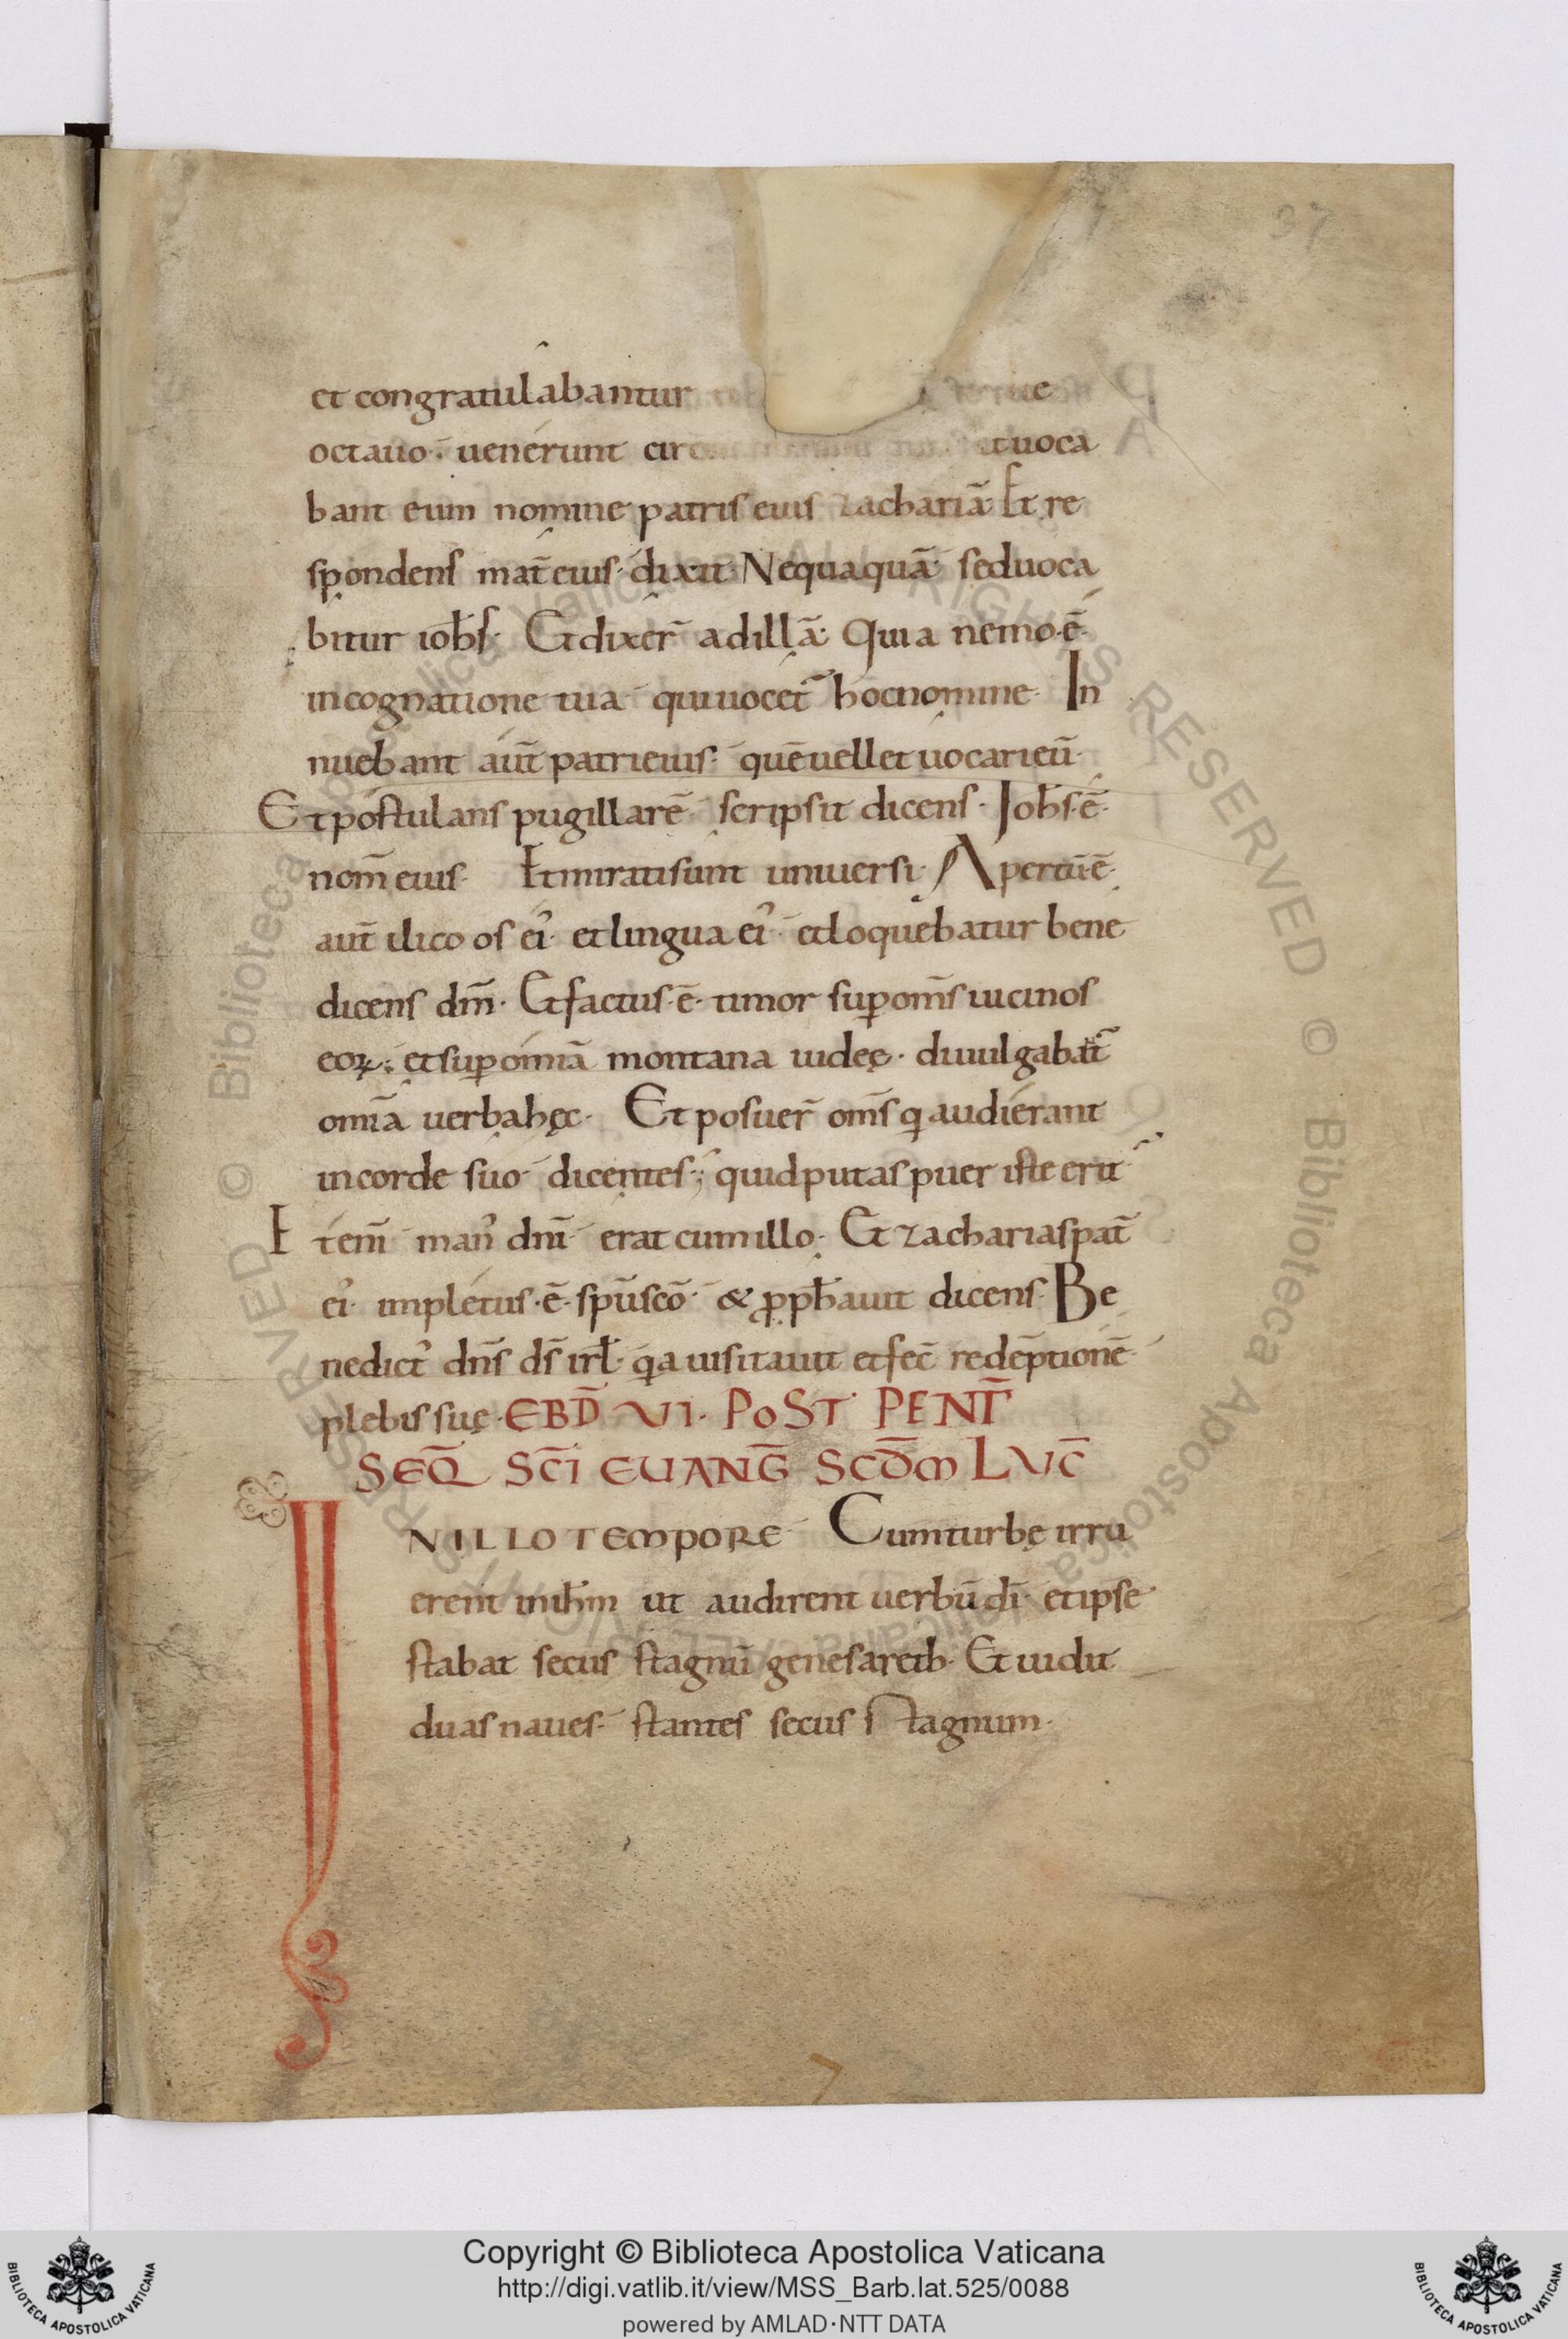 37
et congratulabantur
octauo· uenerunt circ tuoca
bant eum nomine patris eius zachariā· Et re
spondens mat̄ eius· dixit· Nequaquā· sed uoca
bitur ioh̄s· Et dixer̄ ad illā· Quia nemo·ē·
in cognatione tua· qui uocet̄ hoc nomine· In
nuebant aūt patri eius· quē uellet uocari eū·
Et postulans pugillarē· scripsit dicens· Joh̄s·ē·
nom̄ eius· Et mirati sunt uniuersi· Apertū·ē·
aūt ilico os ei᾿· et lingua ei᾿· et loquebatur bene
dicens dm̄· Et factus·ē· timor suꝑ om̄s uicinos
eoꝝ· et suꝑ omīa montana iudeę· diuulgabat̄
omīa uerba hęc· Et posuer̄ om̄s q audierant
in corde suo· dicentes· quid putas puer iste erit·
Et enī man᾿ dnī· erat cum illo· Et zacharias pat̄
ei᾿· impletus·ē· spū scō· & ꝓph̄auit dicens· Be
nedict᾿ dn̄s ds̄ irl̄· q̇a uisitauit et fec̄ redēptionē
plebis suę· EBD̄ VI· POST PENT̄
SEQ̄ SC̄I EUANḠ SCD̄M LUC̄
IN ILLO TEMPORE· Cum turbę irru
erent in ih̄m ut audirent uerbū dī· et ipse
stabat secus stagnū genesareth· Et uidit
duas naues· stantes secus stagnum·
Copyright © Biblioteca Apostolica Vaticana
http://digi.vatlib.it/view/MSS_Barb.lat.525/0088
powered by AMLAD·NTT DATA
BIBLIOTECA APOSTOLICA VATICANA
BIBLIOTECA APOSTOLICA VATICANA